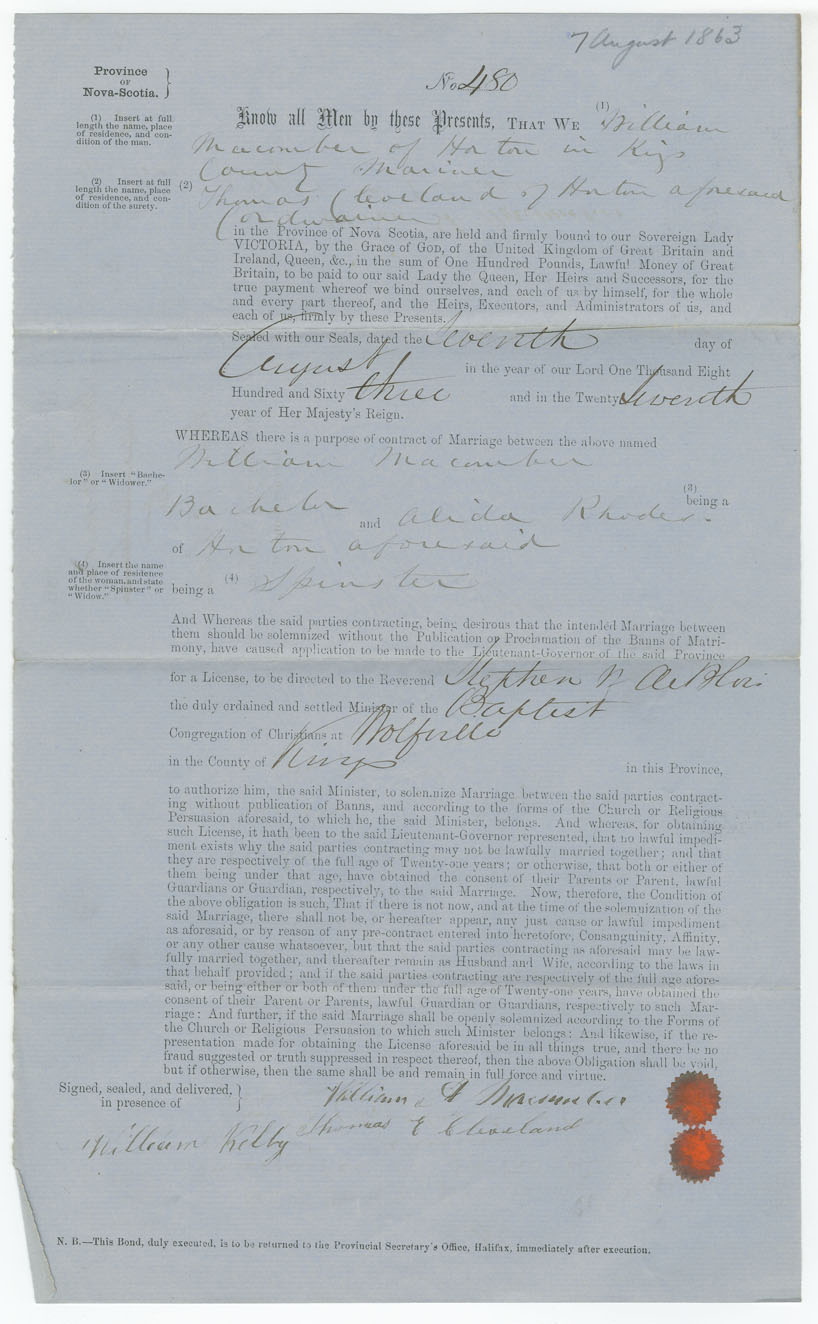 7 August 1863
Province
OF
Nova-Scotia.
No. 480
(1) Insert at full
length the name, place
of residence, and con-
dition of the man.
Know all Men by these Presents, THAT WE (1) William
Macomber of Horton in Kings
County Mariner
(2) Insert at full
length the name, place
of residence, and con-
dition of the surety.
(2) Thomas Cleveland of Horton aforesaid
Cordwainer
in the Province of Nova Scotia, are held and firmly bound to our Sovereign Lady
VICTORIA, by the Grace of GOD, of the United Kingdom of Great Britain and
Ireland, Queen, &c., in the sum of One Hundred Pounds, Lawful Money of Great
Britain, to be paid to our said Lady the Queen, Her Heirs and Successors, for the
true payment whereof we bind ourselves, and each of us by himself, for the whole
and every part thereof, and the Heirs, Executors, and Administrators of us, and
each of us, firmly by these Presents.
Sealed with our Seals, dated the Seventh day of
August in the year of our Lord One Thousand Eight
Hundred and Sixty three and in the Twenty Seventh
year of Her Majesty's Reign.
WHEREAS there is a purpose of contract of Marriage between the above named
William Macomber
(3) Insert "Bache-
lor" or "Widower."
(3)
being a
Bachelor and Alida Rhodes.
of Horton aforesaid
(4) Insert the name
and place of residence
of the woman, and state
whether "Spinster" or
"Widow."
being a (4) Spinster
And Whereas the said parties contracting, being desirous that the intended Marriage between
them should be solemnized without the Publication or Proclamation of the Banns of Matri-
mony, have caused application to be made to the Lieutenant-Governor of the said Province
for a License, to be directed to the Reverend Stephen W DeBlois
the duly ordained and settled Minister of the Baptist
Congregation of Christians at Wolfville
in the County of Kings in this Province,
to authorize him, the said Minister, to solemnize Marriage between the said parties contract-
ing without publication of Banns, and according to the forms of the Church or Religious
Persuasion aforesaid, to which he, the said Minister, belongs. And whereas, for obtaining
such License, it hath been to the said Lieutenant-Governor represented, that no lawful impedi-
ment exists why the said parties contracting may not be lawfully married together; and that
they are respectively of the full age of Twenty-one years; or otherwise, that both or either of
them being under that age, have obtained the consent of their Parents or Parent, lawful
Guardians or Guardian, respectively, to the said Marriage. Now, therefore, the Condition of
the above obligation is such, That if there is not now, and at the time of the solemnization of the
said Marriage, there shall not be, or hereafter appear, any just cause or lawful impediment
as aforesaid, or by reason of any pre-contract entered into heretofore, Consanguinity, Affinity,
or any other cause whatsoever, but that the said parties contracting as aforesaid may be law-
fully married together, and thereafter remain as Husband and Wife, according to the laws in
that behalf provided; and if the said parties contracting are respectively of the full age afore-
said, or being either or both of them under the full age of Twenty-one years, have obtained the
consent of their Parent or Parents, lawful Guardian or Guardians, respectively to such Mar-
riage: And further, if the said Marriage shall be openly solemnized according to the Forms of
the Church or Religious Persuasion to which such Minister belongs: And likewise, if the re-
presentation made for obtaining the License aforesaid be in all things true, and there be no
fraud suggested or truth suppressed in respect thereof, then the above Obligation shall be void,
but if otherwise, then the same shall be and remain in full force and virtue.
Signed, sealed, and delivered,
in presence of
William Macumber
William Kelby
Thomas E Cleveland
N. B.—This Bond, duly executed, is to be returned to the Provincial Secretary's Office, Halifax, immediately after execution.